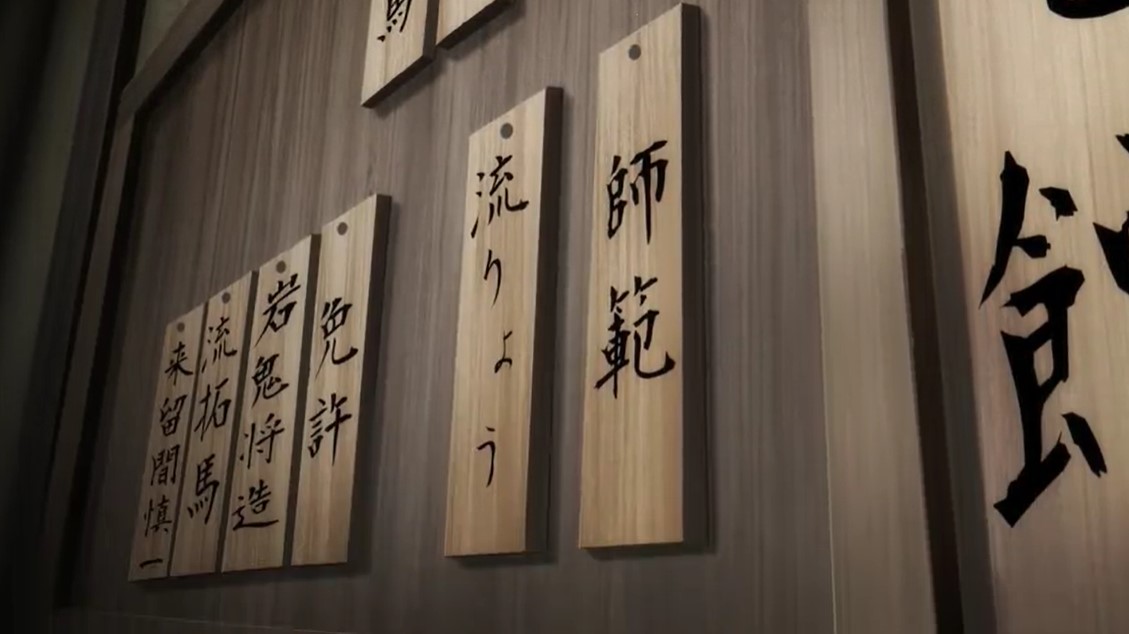 師範
流りょう
免許
岩鬼将造
流拓馬
来留間慎一
馬